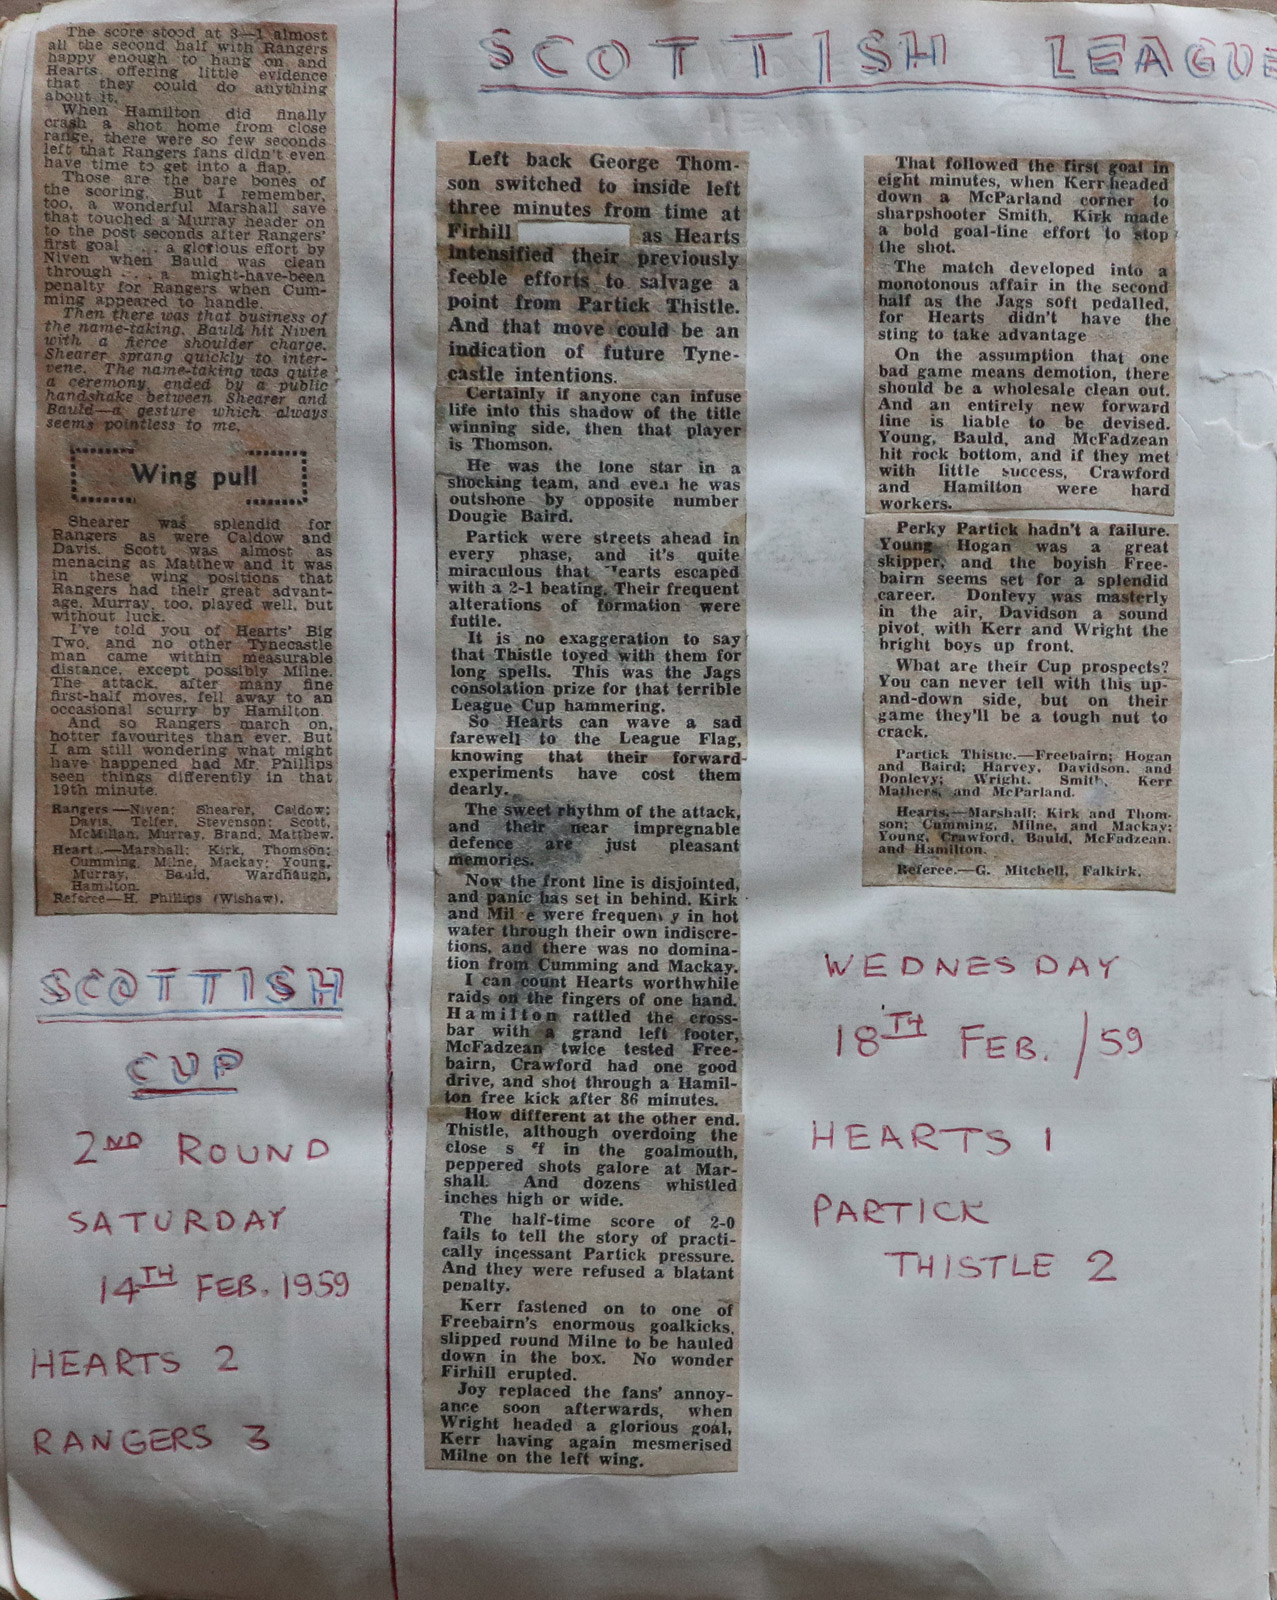 The score stood at 3—1 almost
all the second half with Rangers
happy enough to hang on and
Hearts offering little evidence
that they could do anything
about it.
When Hamilton did finally
crash a shot home from close
range, there were so few seconds
left that Rangers fans didn't even
have time to get into a flap.
Those are the bare bones of
the scoring. But I remember,
too, a wonderful Marshall save
that touched a Murray header on
to the post seconds after Rangers'
first goal . . . a glorious effort by
Niven when Bauld was clean
through . . . a might-have-been
penalty for Rangers when Cum-
ming appeared to handle.
Then there was that business of
the name-taking. Bauld hit Niven
with a fierce shoulder charge.
Shearer sprang quickly to inter-
vene. The name-taking was quite
a ceremony, ended by a public
handshake between Shearer and
Bauld—a gesture which always
seems pointless to me.
Wing pull
Shearer was splendid for
Rangers as were Caldow and
Davis. Scott was almost as
menacing as Matthew and it was
in these wing positions that
Rangers had their great advant-
age. Murray, too, played well, but
without luck.
I've told you of Hearts' Big
Two, and no other Tynecastle
man came within measurable
distance, except possibly Milne.
The attack, after many fine
first-half moves, fell away to an
occasional scurry by Hamilton
And so Rangers march on,
hotter favourites than ever. But
I am still wondering what might
have happened had Mr. Phillips
seen things differently in that
19th minute.
Rangers.—Niven; Shearer, Caldow;
Davis, Telfer, Stevenson; Scott,
McMillan, Murray, Brand, Matthew.
Heart.—Marshall; Kirk, Thomson;
Cumming, Milne, Mackay; Young,
Murray, Bauld, Wardhaugh,
Hamilton.
Referee—H. Phillips (Wishaw).
SCOTTISH
CUP
2ND ROUND
SATURDAY
14TH FEB. 1959
HEARTS 2
RANGERS 3
SCOTTISH LEAGUE
Left back George Thom-
son switched to inside left
three minutes from time at
Firhill as Hearts
intensified their previously
feeble efforts to salvage a
point from Partick Thistle.
And that move could be an
indication of future Tyne-
castle intentions.
Certainly if anyone can infuse
life into this shadow of the title
winning side, then that player
is Thomson.
He was the lone star in a
shocking team, and even he was
outshone by opposite number
Dougie Baird.
Partick were streets ahead in
every phase, and it's quite
miraculous that Hearts escaped
with a 2-1 beating. Their frequent
alterations of formation were
futile.
It is no exaggeration to say
that Thistle toyed with them for
long spells. This was the Jags
consolation prize for that terrible
League Cup hammering.
So Hearts can wave a sad
farewell to the League Flag,
knowing that their forward
experiments have cost them
dearly.
The sweet rhythm of the attack,
and their near impregnable
defence are just pleasant
memories.
Now the front line is disjointed,
and panic has set in behind. Kirk
and Milne were frequently in hot
water through their own indiscre-
tions, and there was no domina-
tion from Cumming and Mackay.
I can count Hearts worthwhile
raids on the fingers of one hand.
Hamilton rattled the cross-
bar with a grand left footer,
McFadzean twice tested Free-
bairn, Crawford had one good
drive, and shot through a Hamil-
ton free kick after 86 minutes.
How different at the other end.
Thistle, although overdoing the
close in the goalmouth,
peppered shots galore at Mar-
shall. And dozens whistled
inches high or wide.
The half-time score of 2-0
fails to tell the story of practi-
cally incessant Partick pressure.
And they were refused a blatant
penalty.
Kerr fastened on to one of
Freebairn's enormous goalkicks,
slipped round Milne to be hauled
down in the box. No wonder
Firhill erupted.
Joy replaced the fans' annoy-
ance soon afterwards, when
Wright headed a glorious goal,
Kerr having again mesmerised
Milne on the left wing.
That followed the first goal in
eight minutes, when Kerr headed
down a McParland corner to
sharpshooter Smith. Kirk made
a bold goal-line effort to stop
the shot.
The match developed into a
monotonous affair in the second
half as the Jags soft pedalled,
for Hearts didn't have the
sting to take advantage
On the assumption that one
bad game means demotion, there
should be a wholesale clean out.
And an entirely new forward
line is liable to be devised.
Young, Bauld, and McFadzean
hit rock bottom, and if they met
with little success, Crawford
and Hamilton were hard
workers.
Perky Partick hadn't a failure.
Young Hogan was a great
skipper, and the boyish Free-
bairn seems set for a splendid
career. Donlevy was masterly
in the air, Davidson a sound
pivot, with Kerr and Wright the
bright boys up front.
What are their Cup prospects?
You can never tell with this up-
and-down side, but on their
game they'll be a tough nut to
crack.
Partick Thistle.—Freebairn; Hogan
and Baird; Harvey, Davidson, and
Donlevy; Wright, Smith, Kerr
Mathers, and McParland.
Hearts.—Marshall; Kirk and Thom-
son; Cumming, Milne, and Mackay;
Young, Crawford, Bauld, McFadzean.
and Hamilton.
Referee.—G. Mitchell, Falkirk.
WEDNESDAY
18TH FEB. / 59
HEARTS 1
PARTICK
THISTLE 2